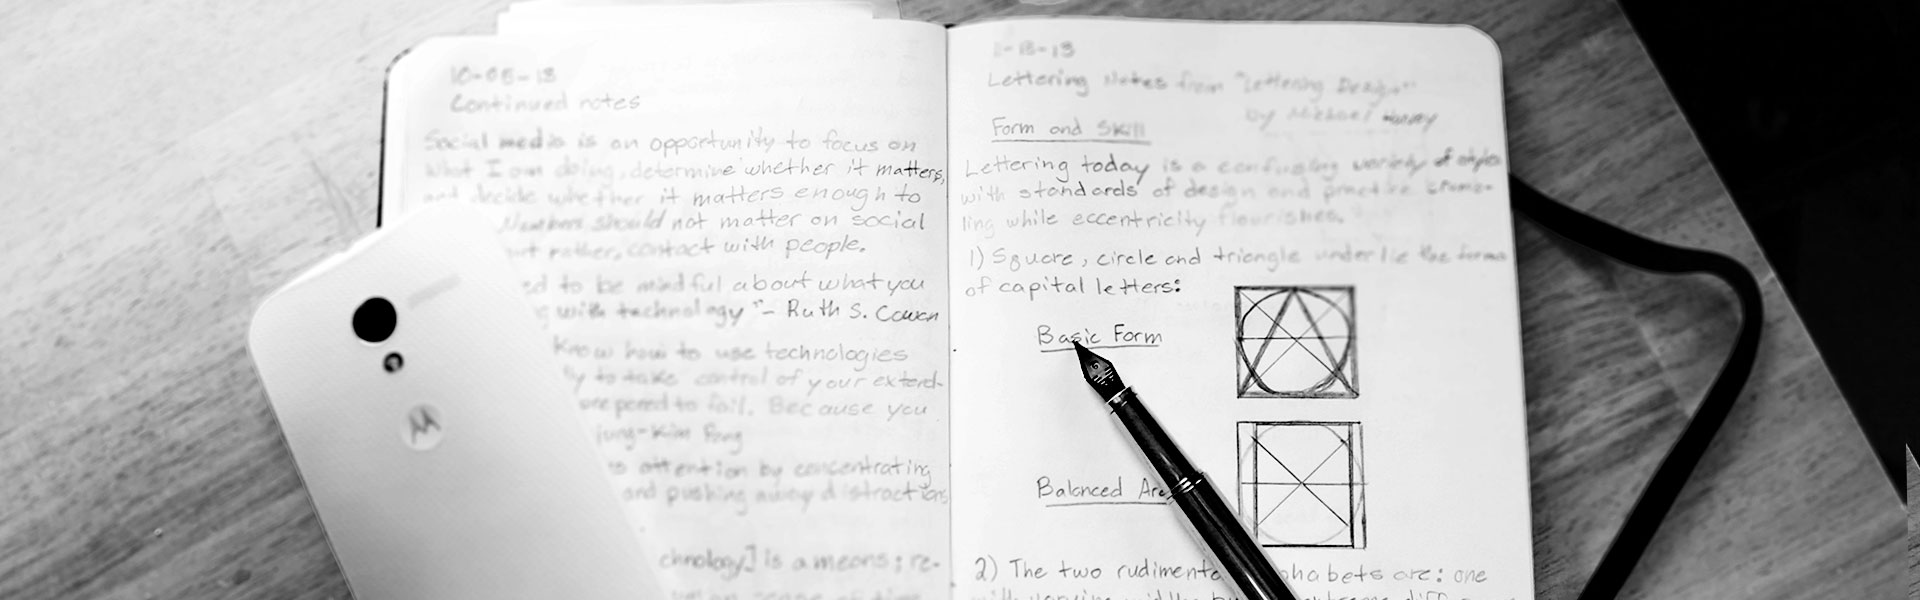 10-05-13
Continued notes
Social media is an opportunity to focus on
what I am doing, determine whether it matters,
and decide whether it matters enough to
Numbers should not matter on social
but rather, contact with people.
to be mindful about what you
with technology" - Ruth S. Cowan
Know how to use technologies
to take control of your extend-
to fail. Because you
attention by concentrating
and pushing away distractions
is a means; re-
1-13-13
Lettering Notes from "Lettering Design"
by Michael Harvey
Form and Skill
Lettering today is a confusing variety of styles
with standards of design and practice crumb-
ling while eccentricity flourishes.
1) Square, circle and triangle underlie the forms
of capital letters:
Basic Form
Balanced
2) The two are: one